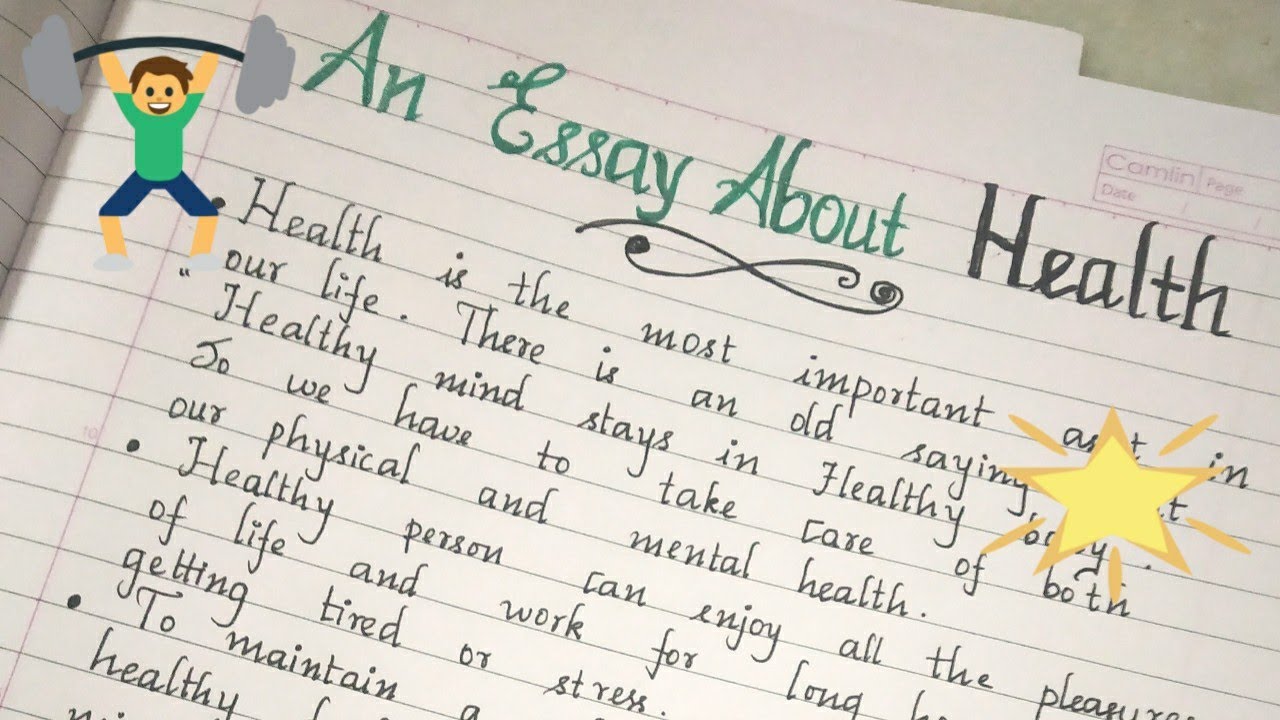 An Essay About Health
Camlin Page
Date
• Health is the most important in
our life. There is an old saying
" Healthy mind stays in Healthy body.
So we have to take care of both
our physical and mental health.
• Healthy person can enjoy all the pleasures
of life and work for long
getting tired or stress.
• To maintain a
healthy